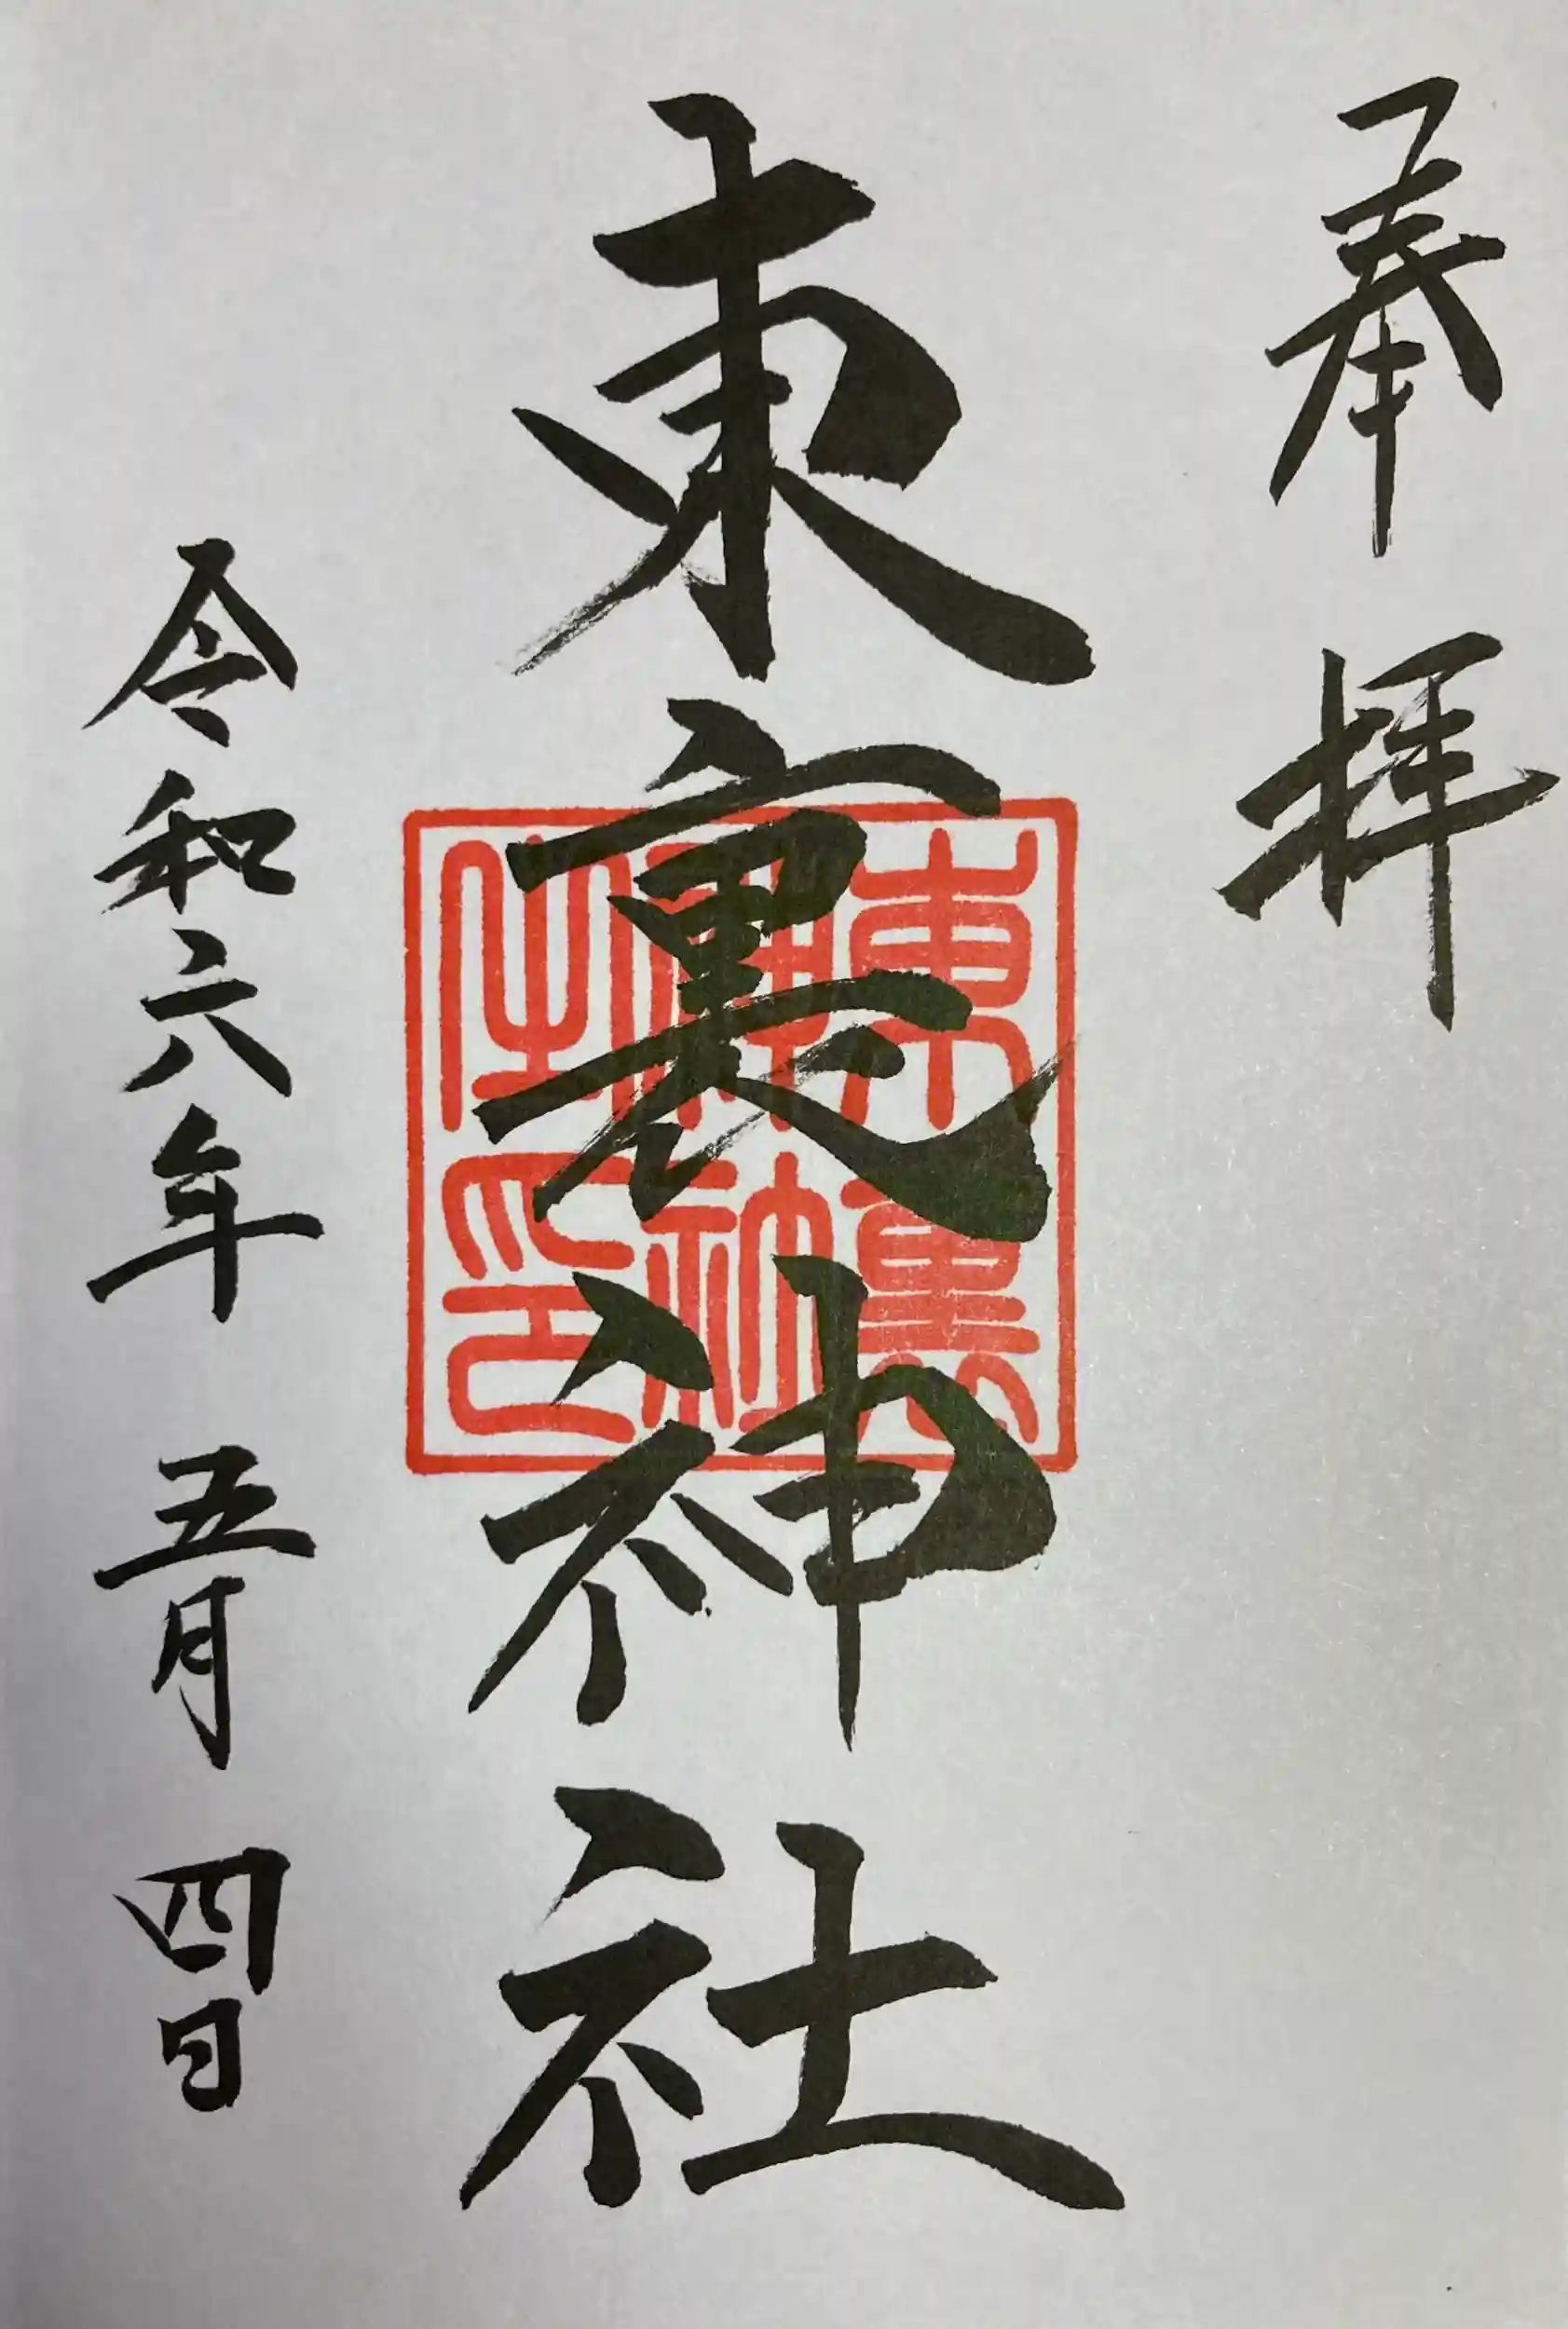 奉拝
東裏神社
東裏神社之印
令和六年 五月 四日